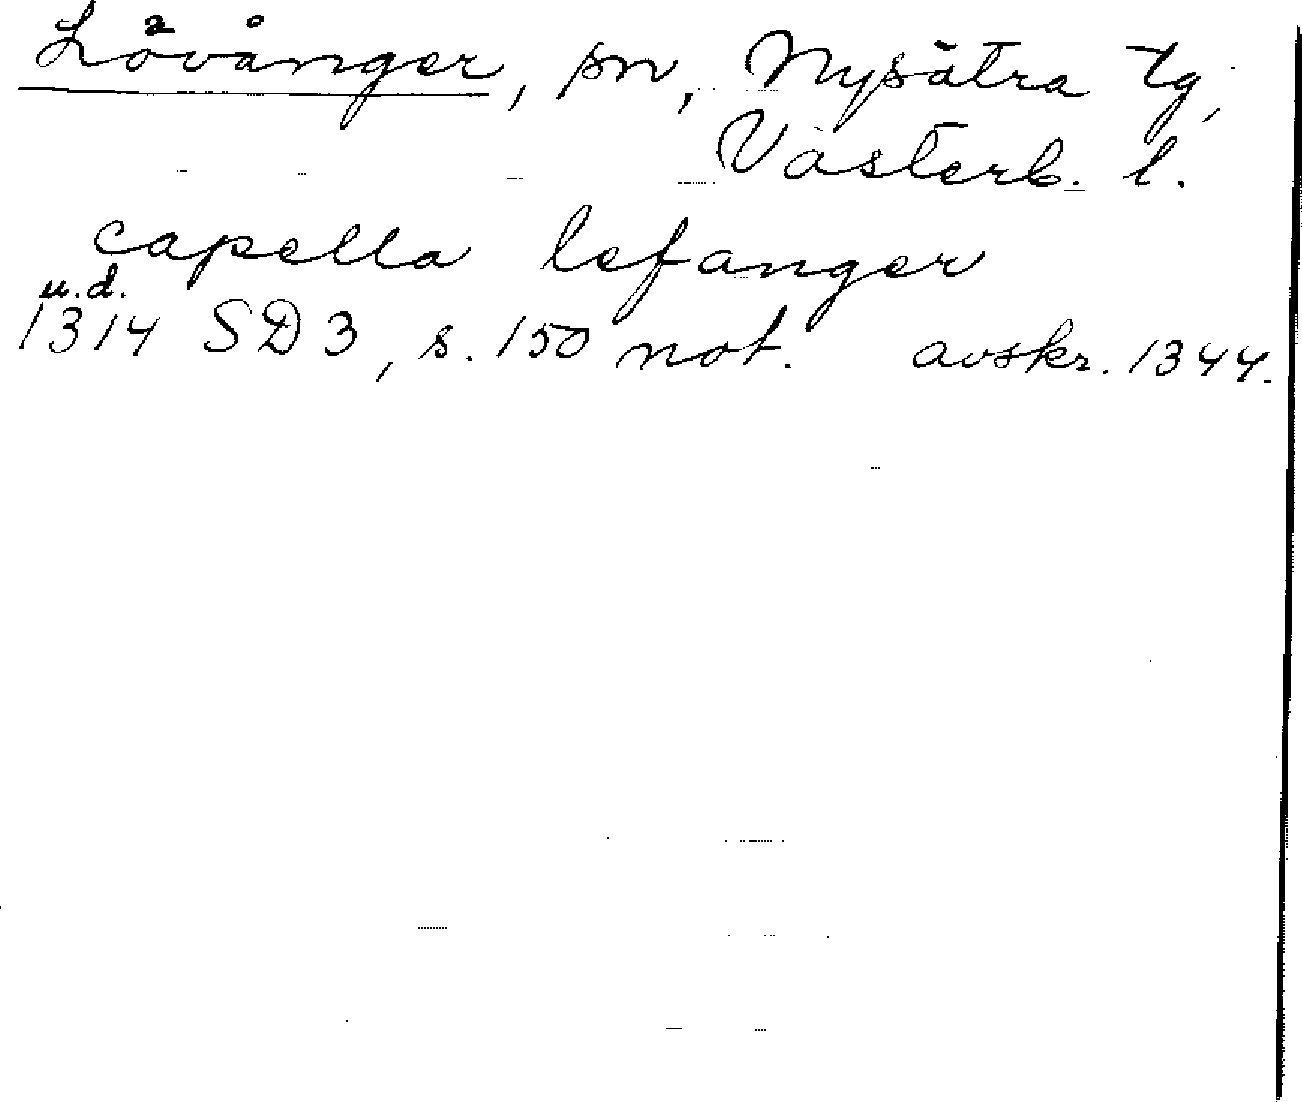 Lövånger, sn, Nysätra tg,
Västerb. l.
capella lefanger
u.d.
1314 SD 3, s. 150 not. avskr. 1344.